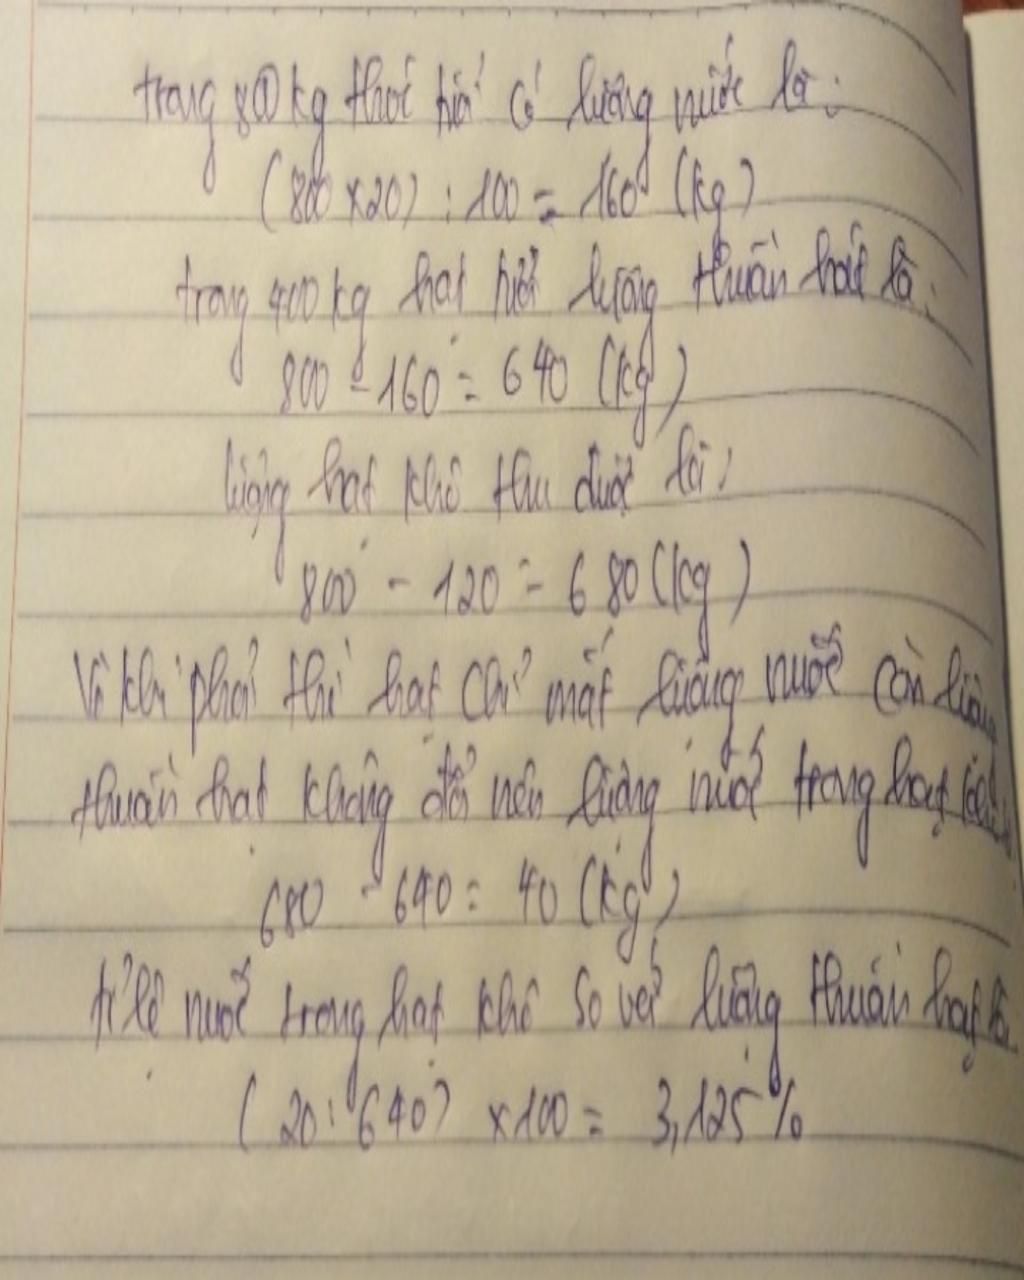 trong 800 kg thóc tươi có lượng nước là:
(800 x 20) : 100 = 160 (kg)
trong 400 kg hạt tươi lượng thuần hạt là:
800 - 160 = 640 (kg)
lượng hạt khô thu được là:
800 - 120 = 680 (kg)
Vì khi phơi thì hạt chỉ mất lượng nước còn lượng
thuần hạt không đổi nên lượng nước trong hạt
680 - 640 = 40 (kg)
tỉ lệ nước trong hạt khô so với lượng thuần hạt là
(20 : 640) x 100 = 3,125%